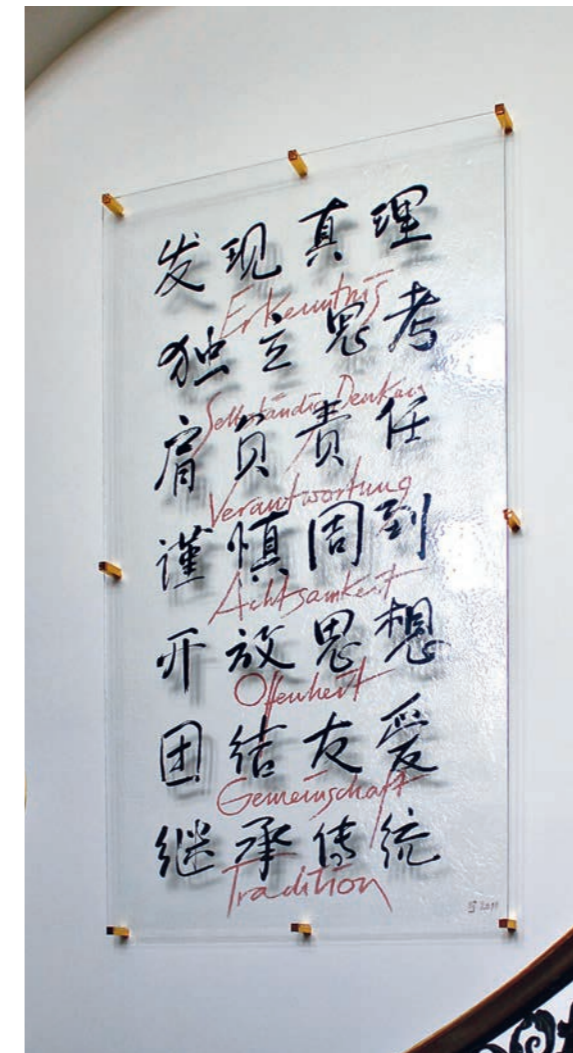 发现真理
Erkenntnis
独立思考
Selbständig Denken
肩负责任
Verantwortung
谨慎周到
Achtsamkeit
开放思想
Offenheit
团结友爱
Gemeinschaft
继承传统
Tradition